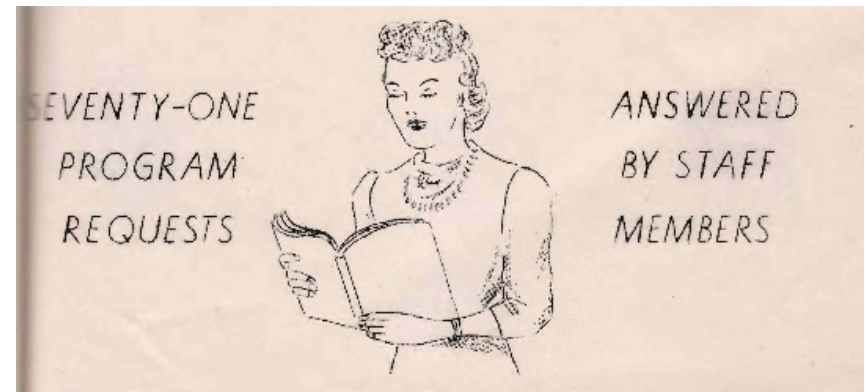 SEVENTY-ONE
PROGRAM
REQUESTS
ANSWERED
BY STAFF
MEMBERS